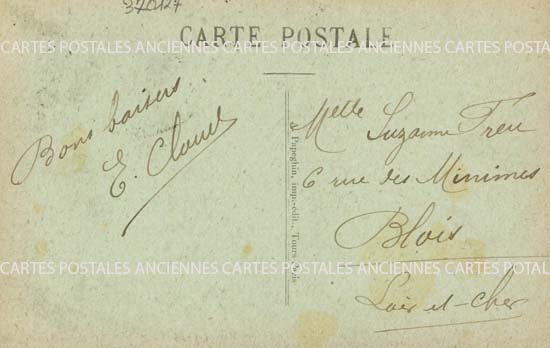 370127
CARTE POSTALE
CARTES POSTALES ANCIENNES CARTES POSTALES ANCIENNES CARTES POSTALES
Bons baisers
E. Clouet
Melle Suzanne Treu
6 rue des Minimes
Blois
Loir-et-Cher
Papeghin, imp.-édit., Tours
CARTES POSTALES ANCIENNES CARTES POSTALES ANCIENNES CARTES POSTALES